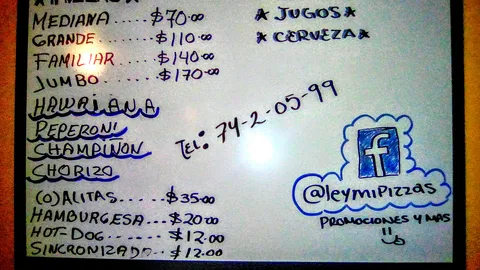 MEDIANA......$70.00
GRANDE.......$110.00
FAMILIAR.....$140.00
JUMBO........$170.00
HAWAIANA
PEPERONI
CHAMPIÑON
CHORIZO
(O)ALITAS......$35.00
HAMBURGESA...$20.00
HOT-DOG......$12.00
SINCRONIZADA..$12.00
★ JUGOS★
★ CERVEZA★
Tel: 74-2-05-99
f
@leymiPizzas
PROMOCIONES Y MAS